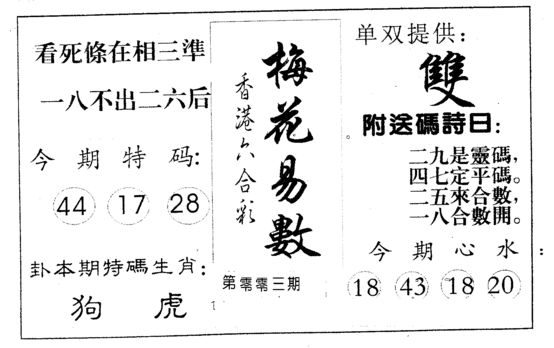 看死條在相三準
一八不出二六后
今期特码:
44 17 28
卦本期特碼生肖:
狗 虎
梅花易數
香港六合彩
第零零三期
单双提供:
雙
附送碼詩日:
二九是靈碼,
四七定平碼。
二五來合數,
一八合數開。
今期心水:
18 43 18 20